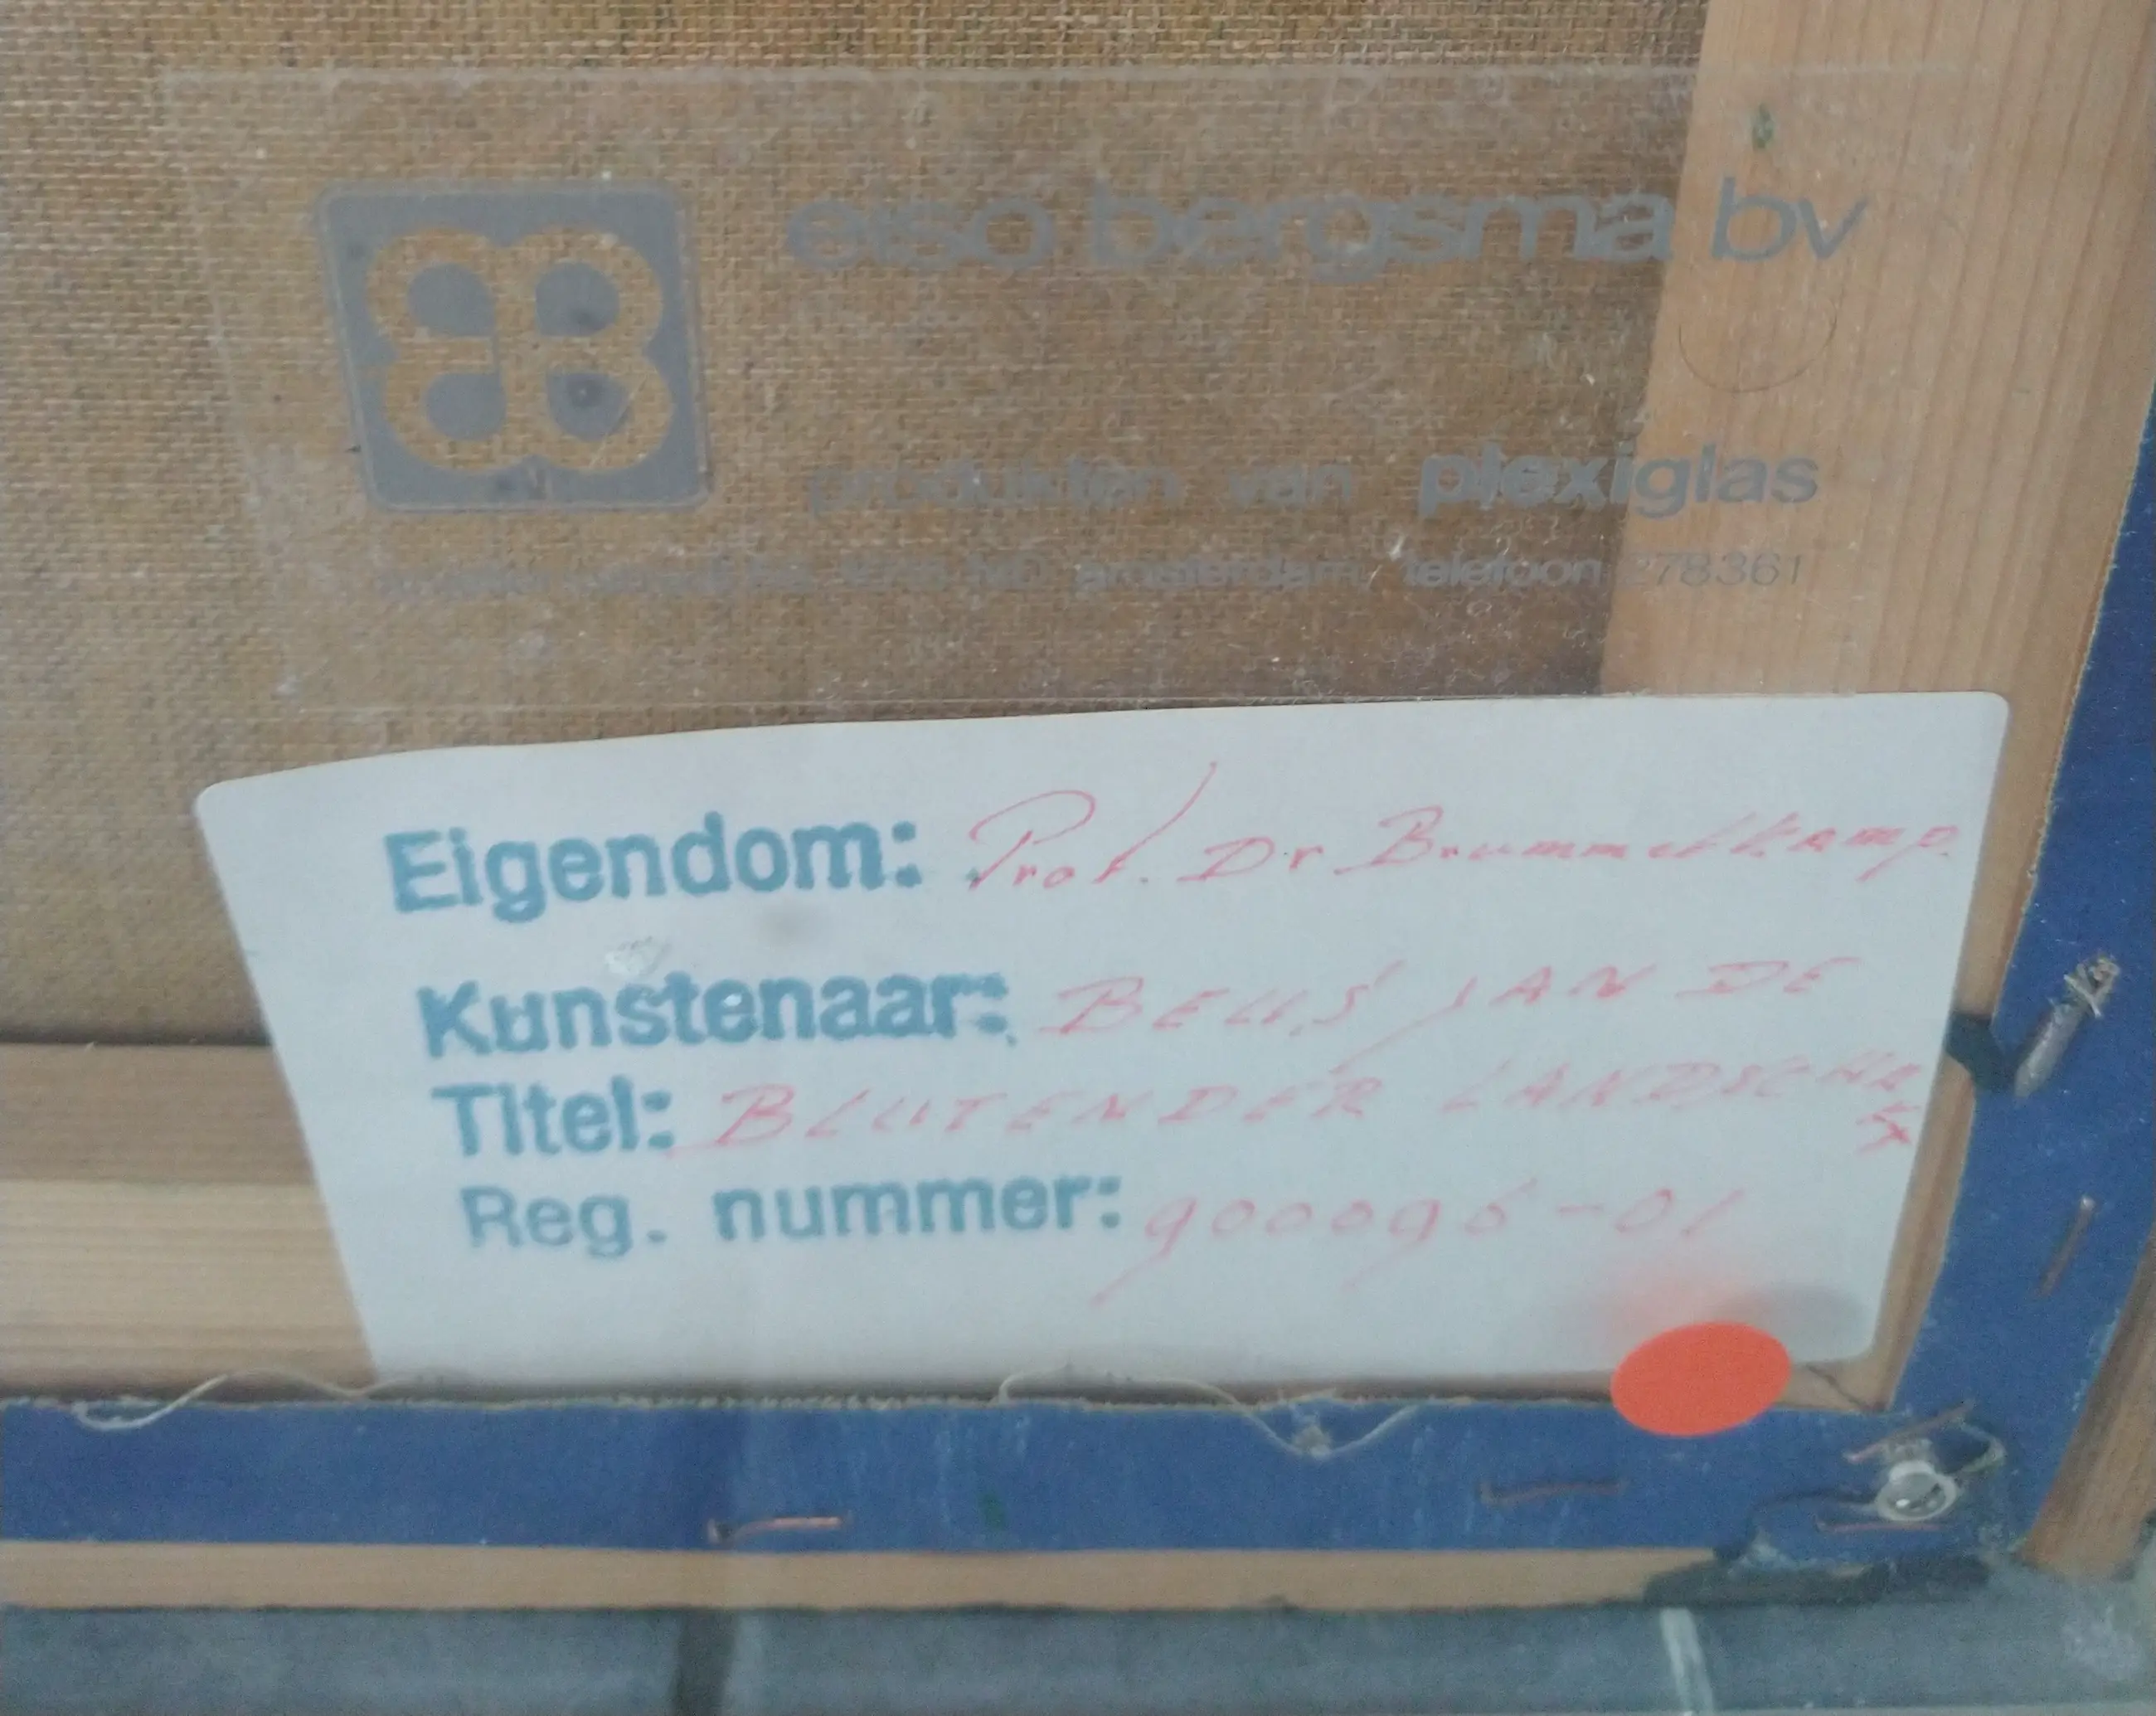 eiso bergsma bv
produkten van plexiglas
amsterdam, telefoon 278361
Eigendom: Prof. Dr Brummelkamp.
Kunstenaar: BEUS, JAN DE
Titel: BLUTENDER LANDSCHAF
Reg. nummer: 900096-01